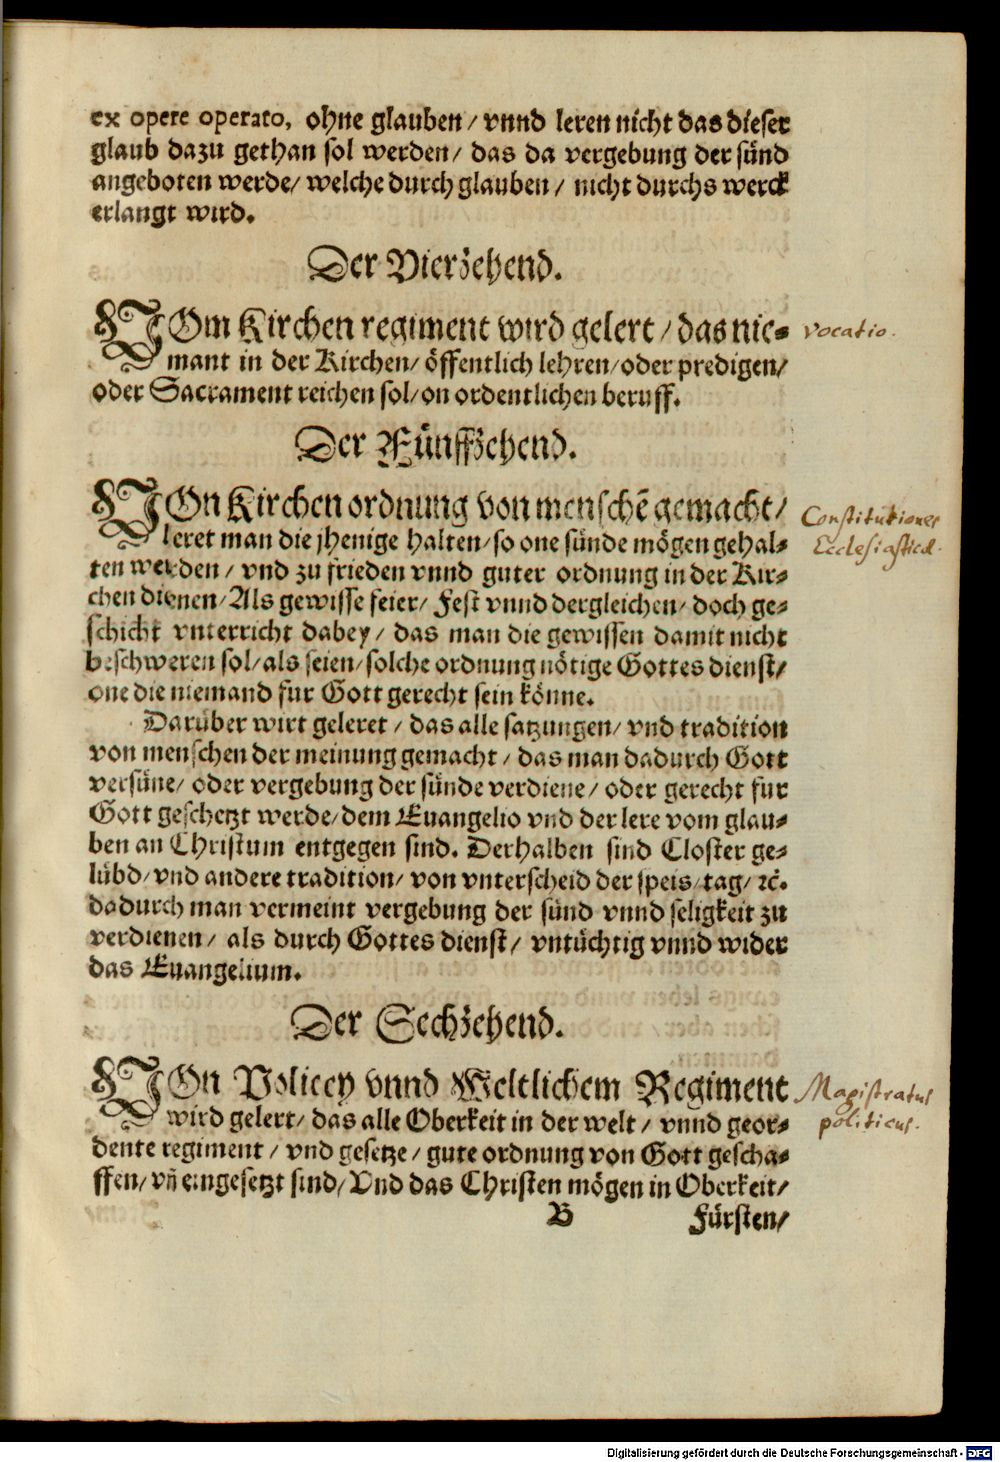 ex opere operato, ohne glauben / vnnd leren nicht das dieser
glaub dazu gethan sol werden / das da vergebung der sünd
angeboten werde / welche durch glauben / nicht durchs werck
erlangt wird.
Der Vierzehend.
VOm Kirchen regiment wird gelert / das nie- vocatio.
mant in der Kirchen / öffentlich lehren / oder predigen /
oder Sacrament reichen sol / on ordentlichen beruff.
Der Fünffzehend.
VOn Kirchen ordnung von menschē gemacht / Constitutiones
leret man die jhenige halten / so one sünde mögen gehal- Ecclesiasticæ.
ten werden / vnd zu frieden vnnd guter ordnung in der Kir-
chen dienen / Als gewisse feier / Fest vnnd dergleichen / doch ge-
schicht vnterricht dabey / das man die gewissen damit nicht
beschweren sol / als seien / solche ordnung nötige Gottes dienst /
one die niemand fur Gott gerecht sein könne.
Darüber wirt geleret / das alle satzungen / vnd tradition
von menschen der meinung gemacht / das man dadurch Gott
versüne / oder vergebung der sünde verdiene / oder gerecht fur
Gott geschetzt werde / dem Euangelio vnd der lere vom glau-
ben an Christum entgegen sind. Derhalben sind Closter ge-
lübd / vnd andere tradition / von vnterscheid der speis / tag / ꝛc.
dadurch man vermeint vergebung der sünd vnnd seligkeit zu
verdienen / als durch Gottes dienst / vntüchtig vnnd wider
das Euangelium.
Der Sechzehend.
VOn Policey vnnd Weltlichem Regiment Magistratus
wird gelert / das alle Oberkeit in der welt / vnnd geor- politicus.
dente regiment / vnd gesetze / gute ordnung von Gott gescha-
ffen / vn̄ eingesetzt sind / Vnd das Christen mögen in Oberkeit /
B Fürsten /
Digitalisierung gefördert durch die Deutsche Forschungsgemeinschaft - DFG